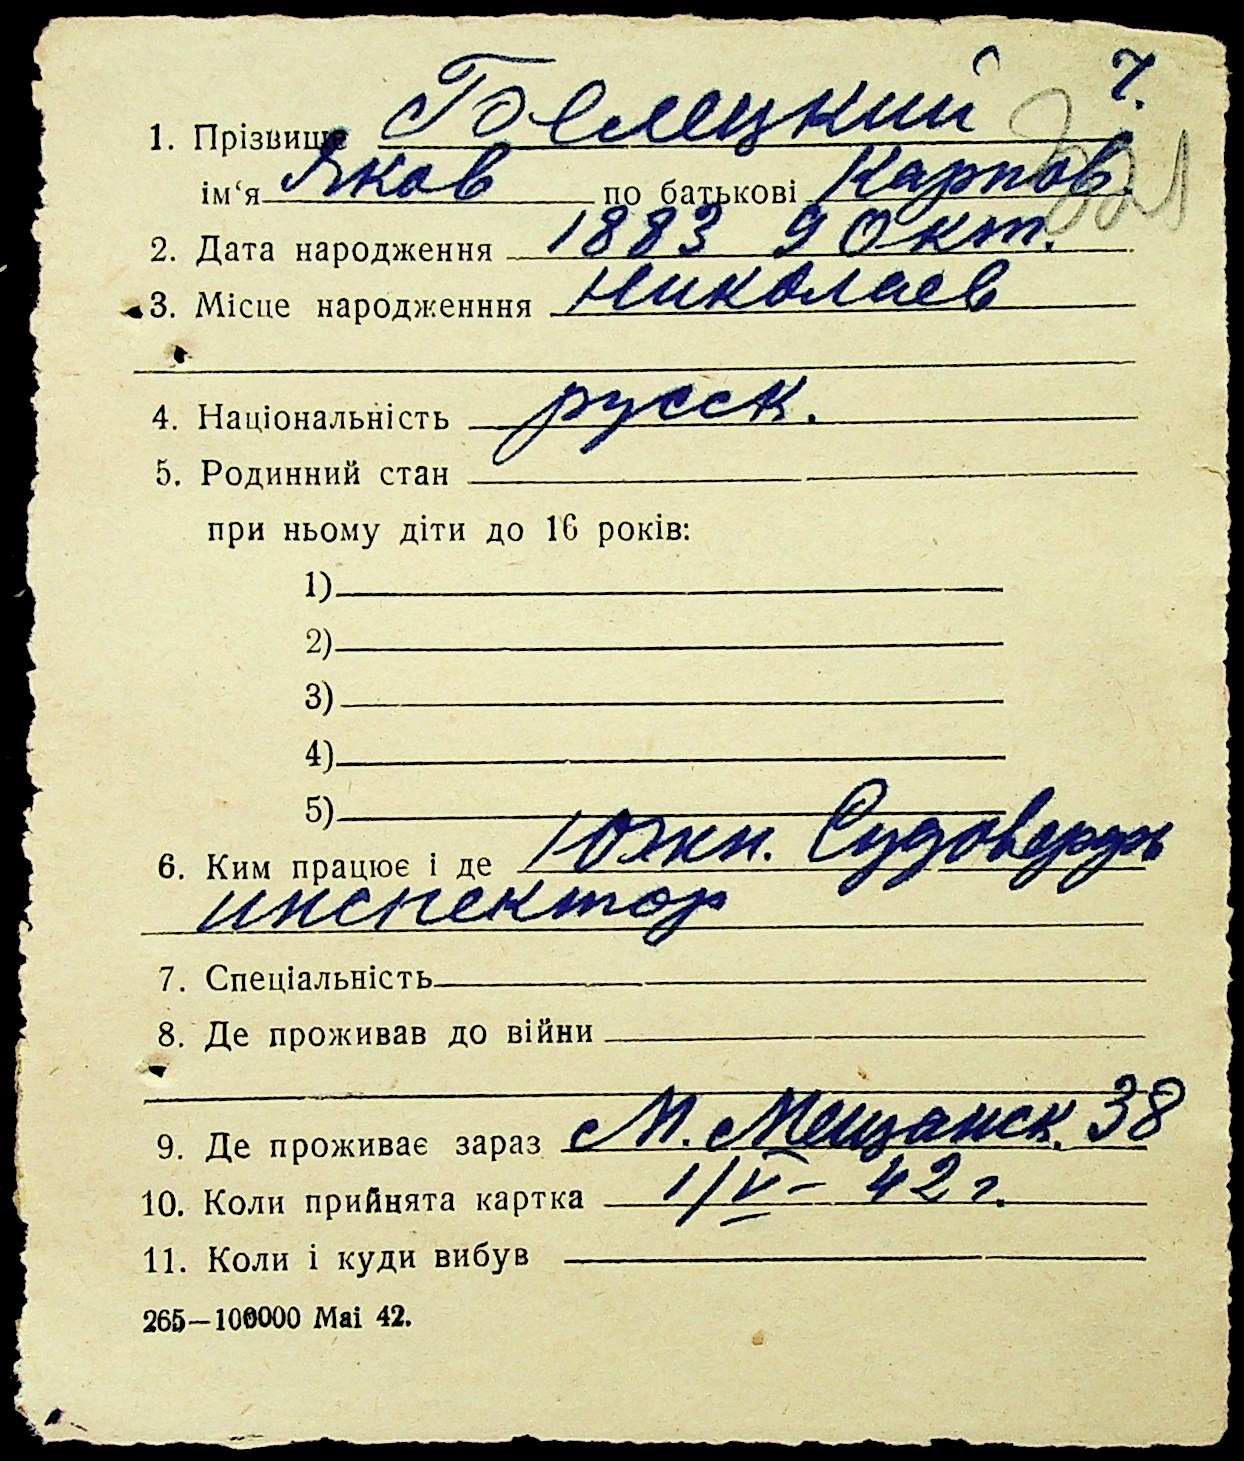 7.
1. Прізвище Гоелецкий
ім‘я Яков по батькові Карпов.
2. Дата народження 1883 9 Окт.
3. Місце народженння Николаев
4. Національність русск.
5. Родинний стан
при ньому діти до 16 років:
1)
2)
3)
4)
5)
6. Ким працює і де Южн. Судоверфь
инспектор
7. Спеціальність
8. Де проживав до війни
9. Де проживає зараз М. Мещанск. 38
10. Коли прийнята картка 1/V – 42 г.
11. Коли і куди вибув
265—100000 Mai 42.